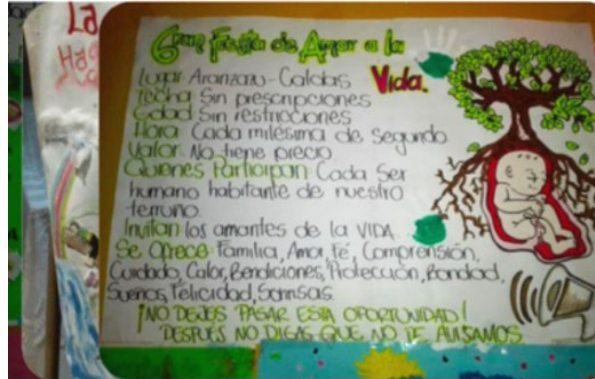 La
Ha
Gran Fiesta de Amor a la
Vida.
Lugar Aranzazu - Caldas
Fecha Sin prescripciones
Edad Sin restricciones
Hora Cada milésima de segundo
Valor No tiene precio
Quienes Participan Cada Ser
humano habitante de nuestro
terruño.
Invitan los amantes de la VIDA
Se Ofrece: Familia, Amor, Fé, Comprensión,
Cuidado, Calor, Bendiciones, Protección, Bondad,
Sueños, Felicidad, Sonrisas.
¡NO DEJES PASAR ESTA OPORTUNIDAD!
DESPUÉS NO DIGAS QUE NO TE AVISAMOS